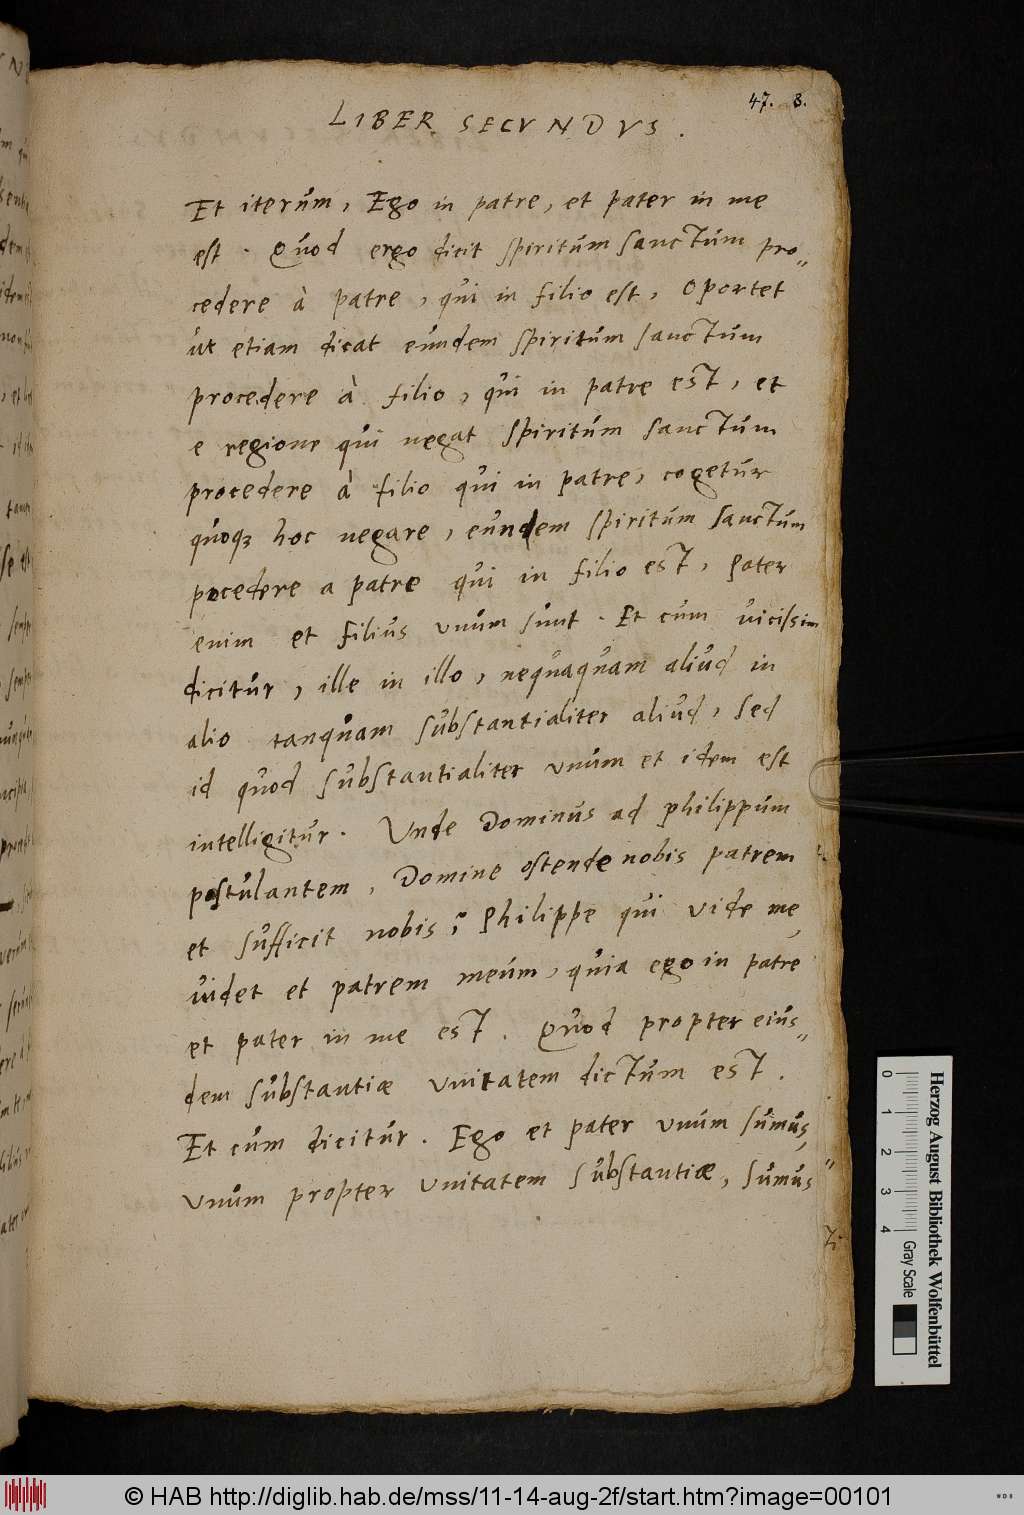 47. 8.
LIBER SECVNDVS.
Et iterum, Ego in patre, et pater in me
est. Quod ergo dicit spiritum sanctum pro„
cedere à patre, qui in filio est, oportet
ut etiam dicat eundem spiritum sanctum
procedere à filio, qui in patre est, et
e regione qui negat spiritum sanctum
procedere à filio qui in patre, cogetur
quoqз hoc negare, eundem spiritum sanctum
pocedere a patre qui in filio est, Pater
enim et Filius vnum sunt. Et cum vicissim
dicitur, ille in illo, nequaquam aliud in
alio tanquam substantialiter aliud, sed
id quod substantialiter vnum et idem est
intelligitur. Unde Dominus ad philippum
postulantem, Domine ostende nobis patrem
et sufficit nobis; Philippe qui vide me,
videt et patrem meum, quia ego in patre
et pater in me est. Quod propter eius„
dem substantiæ vnitatem dictum est.
Et cum dicitur. Ego et pater vnum sumus,
vnum propter vnitatem substantiæ, sumus
Herzog August Bibliothek Wolfenbüttel
0 1 2 3 4
Gray Scale
© HAB http://diglib.hab.de/mss/11-14-aug-2f/start.htm?image=00101